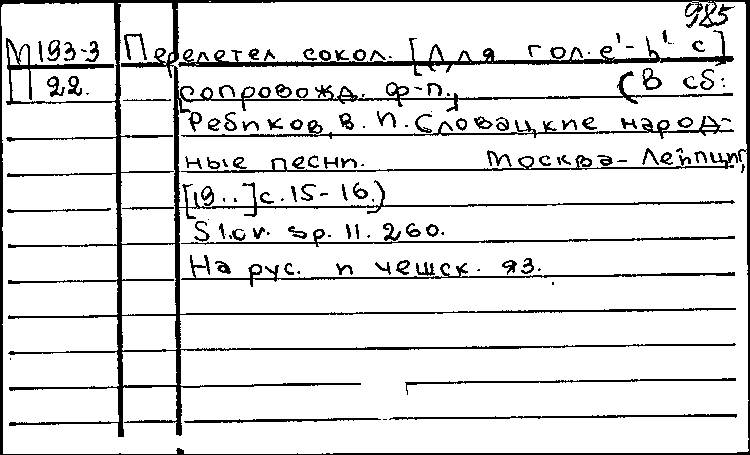 985
М 193-3 Перелетел сокол. [Для гол. e'-h' с]
П 22. сопровожд. ф-п., (В сб:
Ребиков, В. И. Словацкие народ-
ные песни. Москва-Лейпциг,
[19..] с. 15-16.)
Slov. sp. II. 260.
На рус. и чешск. яз.